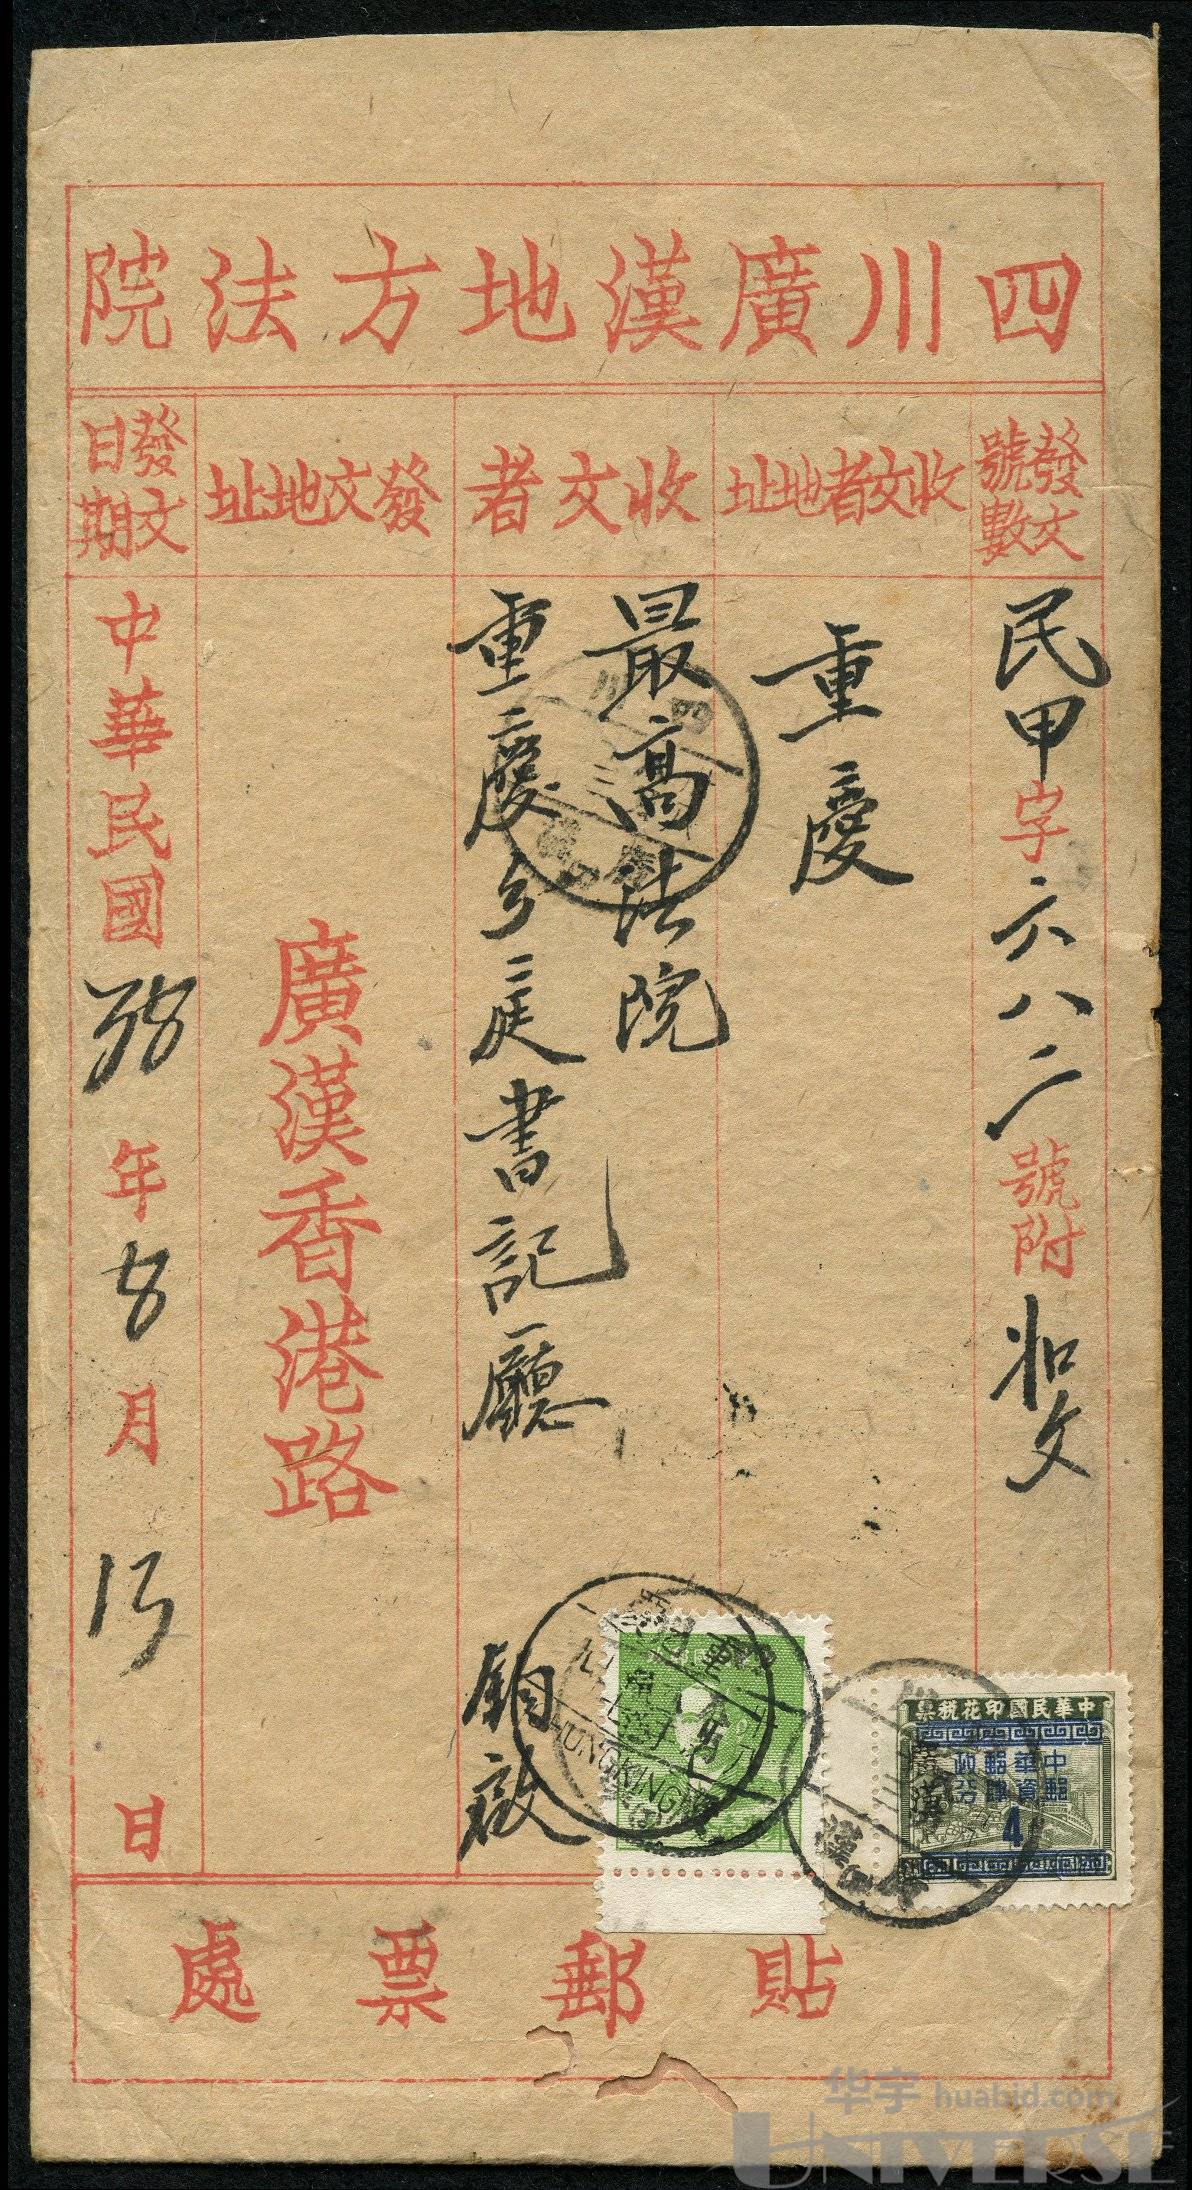 四川廣漢地方法院
發文號數
收文者地址
收文者
發文地址
發文日期
民甲字六八二號附
重慶
最高法院
重慶分庭書記廳
鈞啟
廣漢香港路
中華民國38年8月15日
中華民國印花稅票
中華郵政
郵資肆分
4
廣漢
貼郵票處
华宇 huabid.com
UNIVERSE